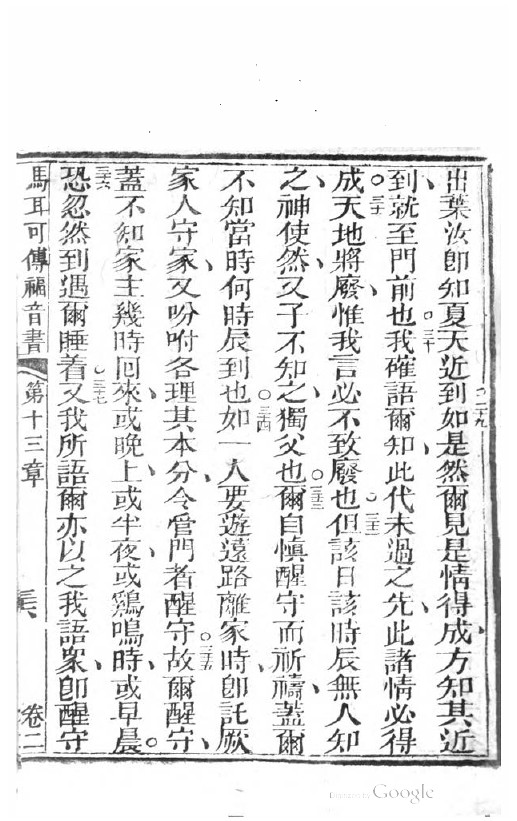 出葉汝即知夏天近到二十九如是然爾見是情得成方知其近
到就至門前也三十我確語爾知此代未過之先此諸情必得
成三十一天地將廢惟我言必不致廢也三十二但該日該時辰無人知
之神使然又子不知之獨父也三十三爾自慎醒守而祈禱蓋爾
不知當時何時辰到也三十四如一人要遊遠路離家時即託厥
家人守家又吩咐各理其本分令管門者醒守三十五故爾醒守
蓋不知家主幾時回來或晚上或半夜或鷄鳴時或早晨
三十六恐忽然到遇爾睡着三十七又我所語爾亦以之我語衆即醒守
馬耳可傳福音書 第十三章 三六 卷二
Digitized by Google